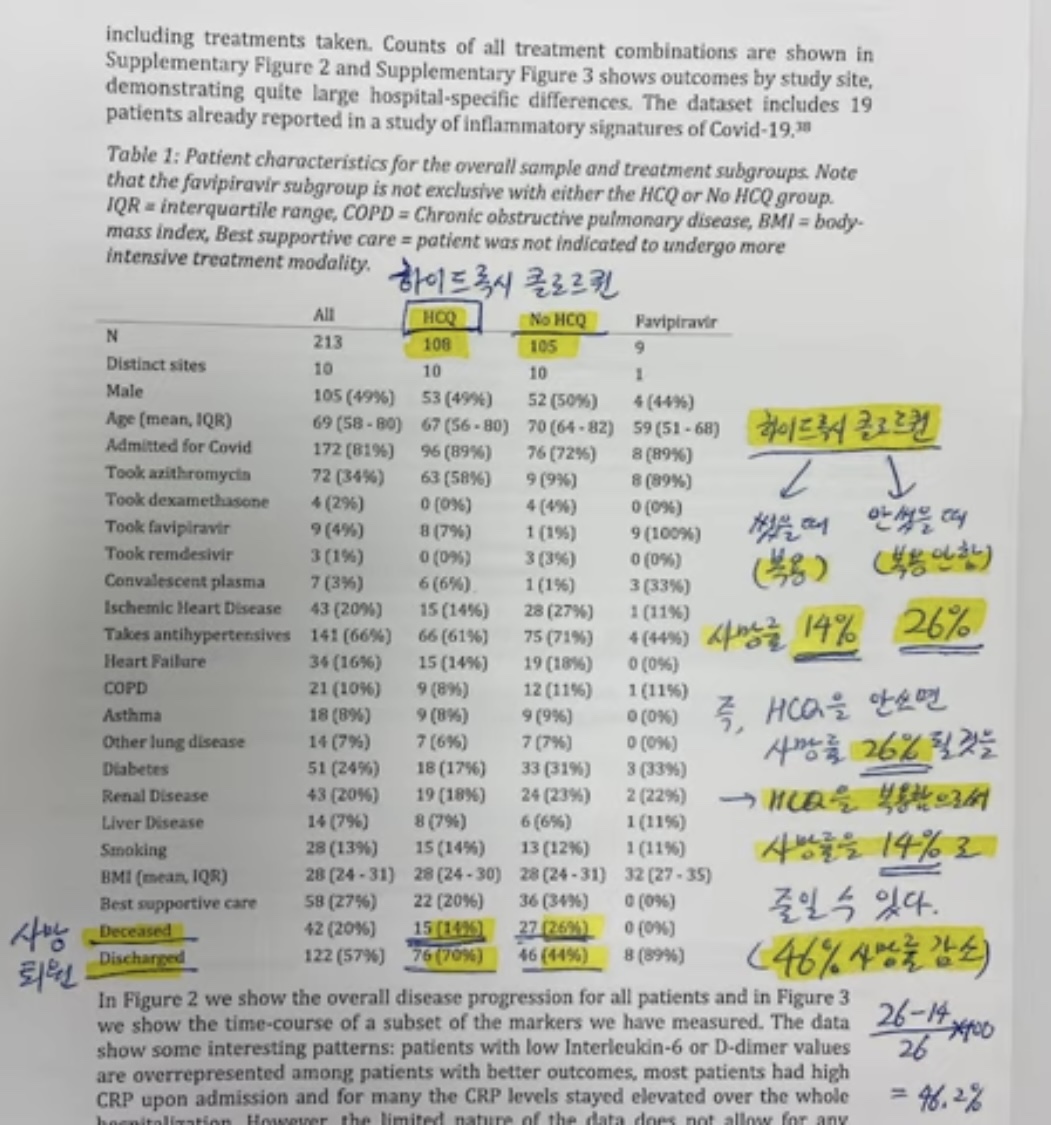 including treatments taken. Counts of all treatment combinations are shown in
Supplementary Figure 2 and Supplementary Figure 3 shows outcomes by study site,
demonstrating quite large hospital-specific differences. The dataset includes 19
patients already reported in a study of inflammatory signatures of Covid-19.³⁸
Table 1: Patient characteristics for the overall sample and treatment subgroups. Note
that the favipiravir subgroup is not exclusive with either the HCQ or No HCQ group.
IQR = interquartile range, COPD = Chronic obstructive pulmonary disease, BMI = body-
mass index, Best supportive care = patient was not indicated to undergo more
intensive treatment modality.
하이드록시 클로르퀸
All HCQ No HCQ Favipiravir
N 213 108 105 9
Distinct sites 10 10 10 1
Male 105 (49%) 53 (49%) 52 (50%) 4 (44%)
Age (mean, IQR) 69 (58 - 80) 67 (56 - 80) 70 (64 - 82) 59 (51 - 68)
Admitted for Covid 172 (81%) 96 (89%) 76 (72%) 8 (89%)
Took azithromycin 72 (34%) 63 (58%) 9 (9%) 8 (89%)
Took dexamethasone 4 (2%) 0 (0%) 4 (4%) 0 (0%)
Took favipiravir 9 (4%) 8 (7%) 1 (1%) 9 (100%)
Took remdesivir 3 (1%) 0 (0%) 3 (3%) 0 (0%)
Convalescent plasma 7 (3%) 6 (6%) 1 (1%) 3 (33%)
Ischemic Heart Disease 43 (20%) 15 (14%) 28 (27%) 1 (11%)
Takes antihypertensives 141 (66%) 66 (61%) 75 (71%) 4 (44%)
Heart Failure 34 (16%) 15 (14%) 19 (18%) 0 (0%)
COPD 21 (10%) 9 (8%) 12 (11%) 1 (11%)
Asthma 18 (8%) 9 (8%) 9 (9%) 0 (0%)
Other lung disease 14 (7%) 7 (6%) 7 (7%) 0 (0%)
Diabetes 51 (24%) 18 (17%) 33 (31%) 3 (33%)
Renal Disease 43 (20%) 19 (18%) 24 (23%) 2 (22%)
Liver Disease 14 (7%) 8 (7%) 6 (6%) 1 (11%)
Smoking 28 (13%) 15 (14%) 13 (12%) 1 (11%)
BMI (mean, IQR) 28 (24 - 31) 28 (24 - 30) 28 (24 - 31) 32 (27 - 35)
Best supportive care 58 (27%) 22 (20%) 36 (34%) 0 (0%)
사망 Deceased 42 (20%) 15 (14%) 27 (26%) 0 (0%)
퇴원 Discharged 122 (57%) 76 (70%) 46 (44%) 8 (89%)
하이드록시 클로르퀸
썼을 때 안 썼을 때
(복용) (복용 안함)
사망률 14% 26%
즉, HCQ을 안쓰면
사망률 26% 될 것을
→ HCQ을 복용함으로써
사망률을 14%로
줄일 수 있다.
(46% 사망률 감소)
26-14
26
×100
= 46.2%
In Figure 2 we show the overall disease progression for all patients and in Figure 3
we show the time-course of a subset of the markers we have measured. The data
show some interesting patterns: patients with low Interleukin-6 or D-dimer values
are overrepresented among patients with better outcomes, most patients had high
CRP upon admission and for many the CRP levels stayed elevated over the whole
hospitalization. However, the limited nature of the data does not allow for any